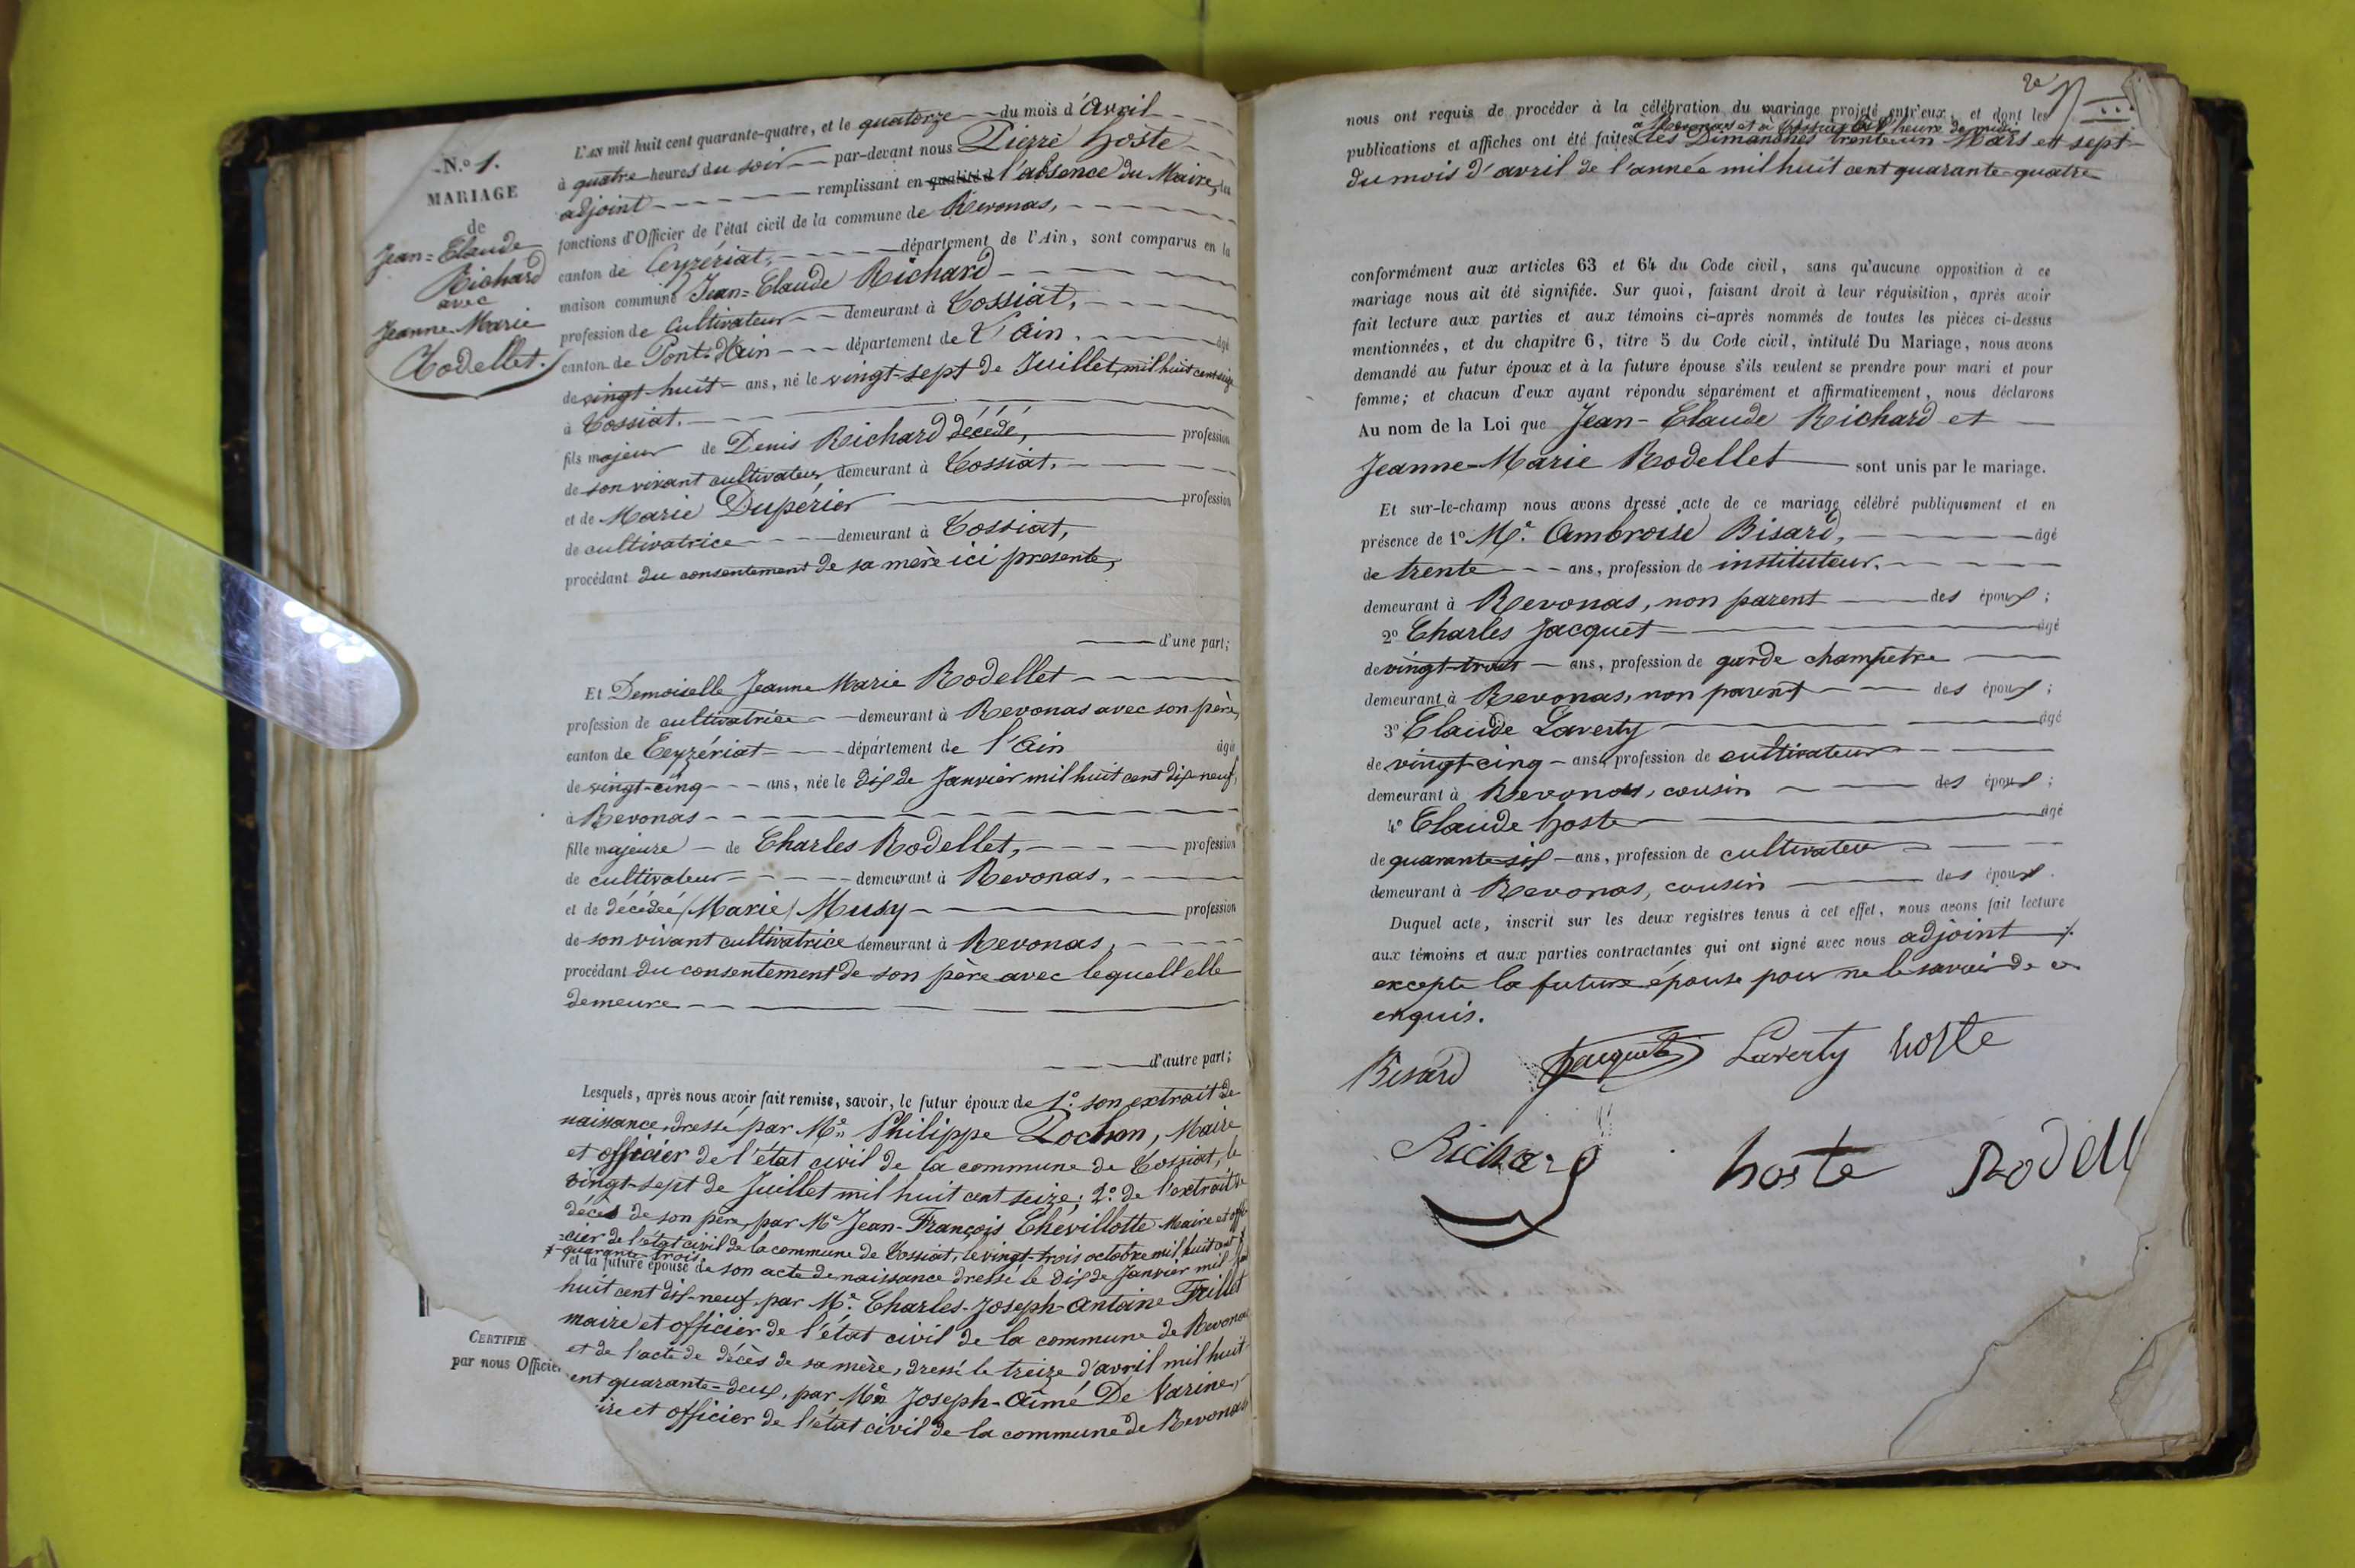 N.º 1.
MARIAGE
de
Jean=Claude
Richard
avec
Jeanne-Marie
Rodellet.
L'AN mil huit cent quarante-quatre, et le quatorze du mois d'Avril
à quatre heures du soir par-devant nous Pierre hoste
adjoint remplissant en qualité d l'absence du Maire, les
fonctions d'Officier de l'état civil de la commune de Revonas,
canton de Ceyzériat, département de l'Ain, sont comparus en la
maison commune Jean=Claude Richard
profession de Cultivateur demeurant à Tossiat,
canton de Pont-d'Ain département de L'Ain, âgé
de vingt-huit ans, né le vingt-sept de Juillet, mil huit cent seize
à Tossiat.
fils majeur de Denis Richard décédé, profession
de son vivant cultivateur demeurant à Tossiat,
et de Marie Dupérier profession
de cultivatrice demeurant à Tossiat,
procédant du consentement de sa mère ici presente,
d'une part;
Et Demoiselle Jeanne-Marie Rodellet
profession de cultivatrice demeurant à Revonas avec son père,
canton de Ceyzériat département de l'Ain âgée
de vingt-cinq ans, née le dix de Janvier mil huit cent dix-neuf,
à Revonas
fille majeure de Charles Rodellet, profession
de cultivateur demeurant à Revonas,
et de décédée Marie Musy profession
de son vivant cultivatrice demeurant à Revonas,
procédant du consentement de son père avec lequell elle
demeure
d'autre part;
Lesquels, après nous avoir fait remise, savoir, le futur époux de 1.º son extrait de
naissance, dressé par Me Philippe Pochon, Maire
et officier de l'état civil de la commune de Tossiat, le
vingt-sept de Juillet mil huit cent seize; 2.º de l'extrait de
décès de son père, par Me Jean-François Chevillotte Maire et offi-
-cier de l'état civil de la commune de Tossiat, le vingt-trois octobre mil huit cent
quarante-trois.
et la future épouse de son acte de naissance dressé le dix de Janvier mil
huit cent dix-neuf, par Me. Charles-Joseph-Antoine Frillet
maire et officier de l'état civil de la commune de Revonas
et de l'acte de décès de sa mère, dressé le treize d'avril mil huit
ent quarante=deux, par Me Joseph-Aimé De Varine,
ire et officier de l'état civil de la commune de Revonas
CERTIFIÉ
par nous Officie
2e
nous ont requis de procéder à la célébration du mariage projeté entr'eux, et dont les
à Revonas et à Tossiat à l'heure de midi
publications et affiches ont été faites les Dimanches trente-un Mars et sept
du mois d'avril de l'année mil huit cent quarante-quatre
conformément aux articles 63 et 64 du Code civil, sans qu'aucune opposition à ce
mariage nous ait été signifiée. Sur quoi, faisant droit à leur réquisition, après avoir
fait lecture aux parties et aux témoins ci-après nommés de toutes les pièces ci-dessus
mentionnées, et du chapitre 6, titre 5 du Code civil, intitulé Du Mariage, nous avons
demandé au futur époux et à la future épouse s'ils veulent se prendre pour mari et pour
femme; et chacun d'eux ayant répondu séparément et affirmativement, nous déclarons
Au nom de la Loi que Jean-Claude Richard et
Jeanne-Marie Rodellet sont unis par le mariage.
Et sur-le-champ nous avons dressé acte de ce mariage célébré publiquement et en
présence de 1º Me. Ambroise Bisard, âgé
de trente ans, profession de instituteur,
demeurant à Revonas, non parent des époux;
2º Charles Jacquet âgé
de vingt-trois ans, profession de garde champetre
demeurant à Revonas, non parent des époux;
3º Claude Laverty âgé
de vingt-cinq ans, profession de cultivateur
demeurant à Revonas, cousin des époux;
4º Claude hoste âgé
de quarante-six ans, profession de cultivateur
demeurant à Revonas, cousin des époux.
Duquel acte, inscrit sur les deux registres tenus à cet effet, nous avons fait lecture
aux témoins et aux parties contractantes qui ont signé avec nous adjoint
excepte la future épouse pour ne le savoir de ce
enquis.
Bisard Jacquet Laverty hoste
Richard hoste Rodell